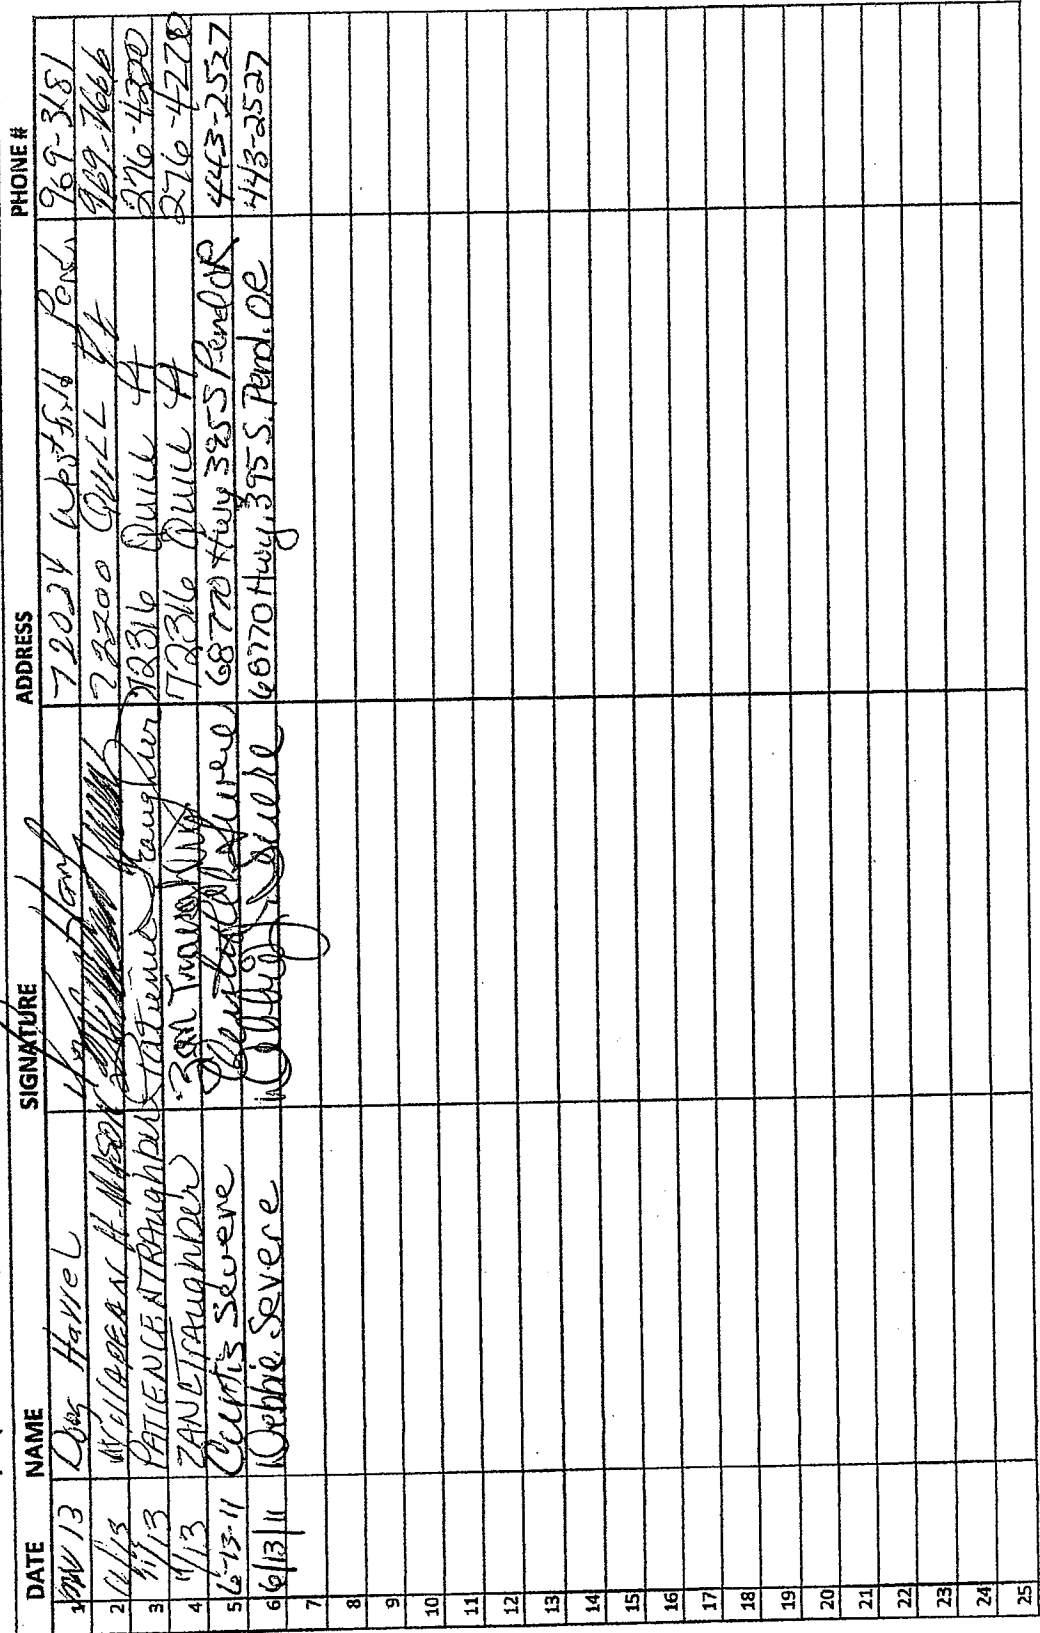 DATE NAME SIGNATURE ADDRESS PHONE #
1 13 Doug Harrel 72024 Westfield Pend. 969-3181
2 6/13 72200 QUILL Pt 969-7666
3 6/13 PATIENCE N TRAughber Patience Traughber 72316 Quill Pt 276-4220
4 6/13 ZAN TRAughber Zan Traughber 72316 Quill Pt 276-4220
5 6-13-11 Curtis Severe Curtis Severe 68770 Hwy 395 S Pend OR 443-2527
6 6/13/11 Debbie Severe Debbie Severe 68770 Hwy. 395 S. Pend. OR 443-2527
7
8
9
10
11
12
13
14
15
16
17
18
19
20
21
22
23
24
25